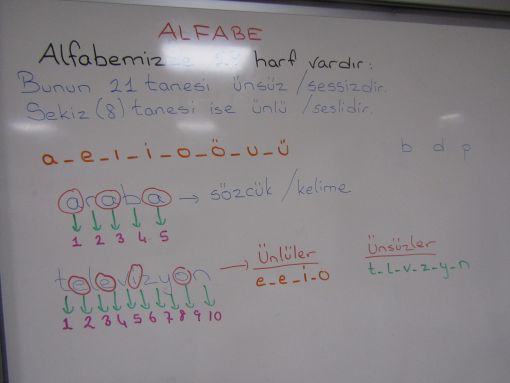 ALFABE
Alfabemizde 29 harf vardır:
Bunun 21 tanesi ünsüz /sessizdir.
Sekiz (8) tanesi ise ünlü /seslidir.
a_e_ı_i_o_ö_u_ü
b d p
araba → sözcük /kelime
1 2 3 4 5
televizyon → Ünlüler Ünsüzler
e_e_i_o t_l_v_z_y_n
1 2 3 4 5 6 7 8 9 10